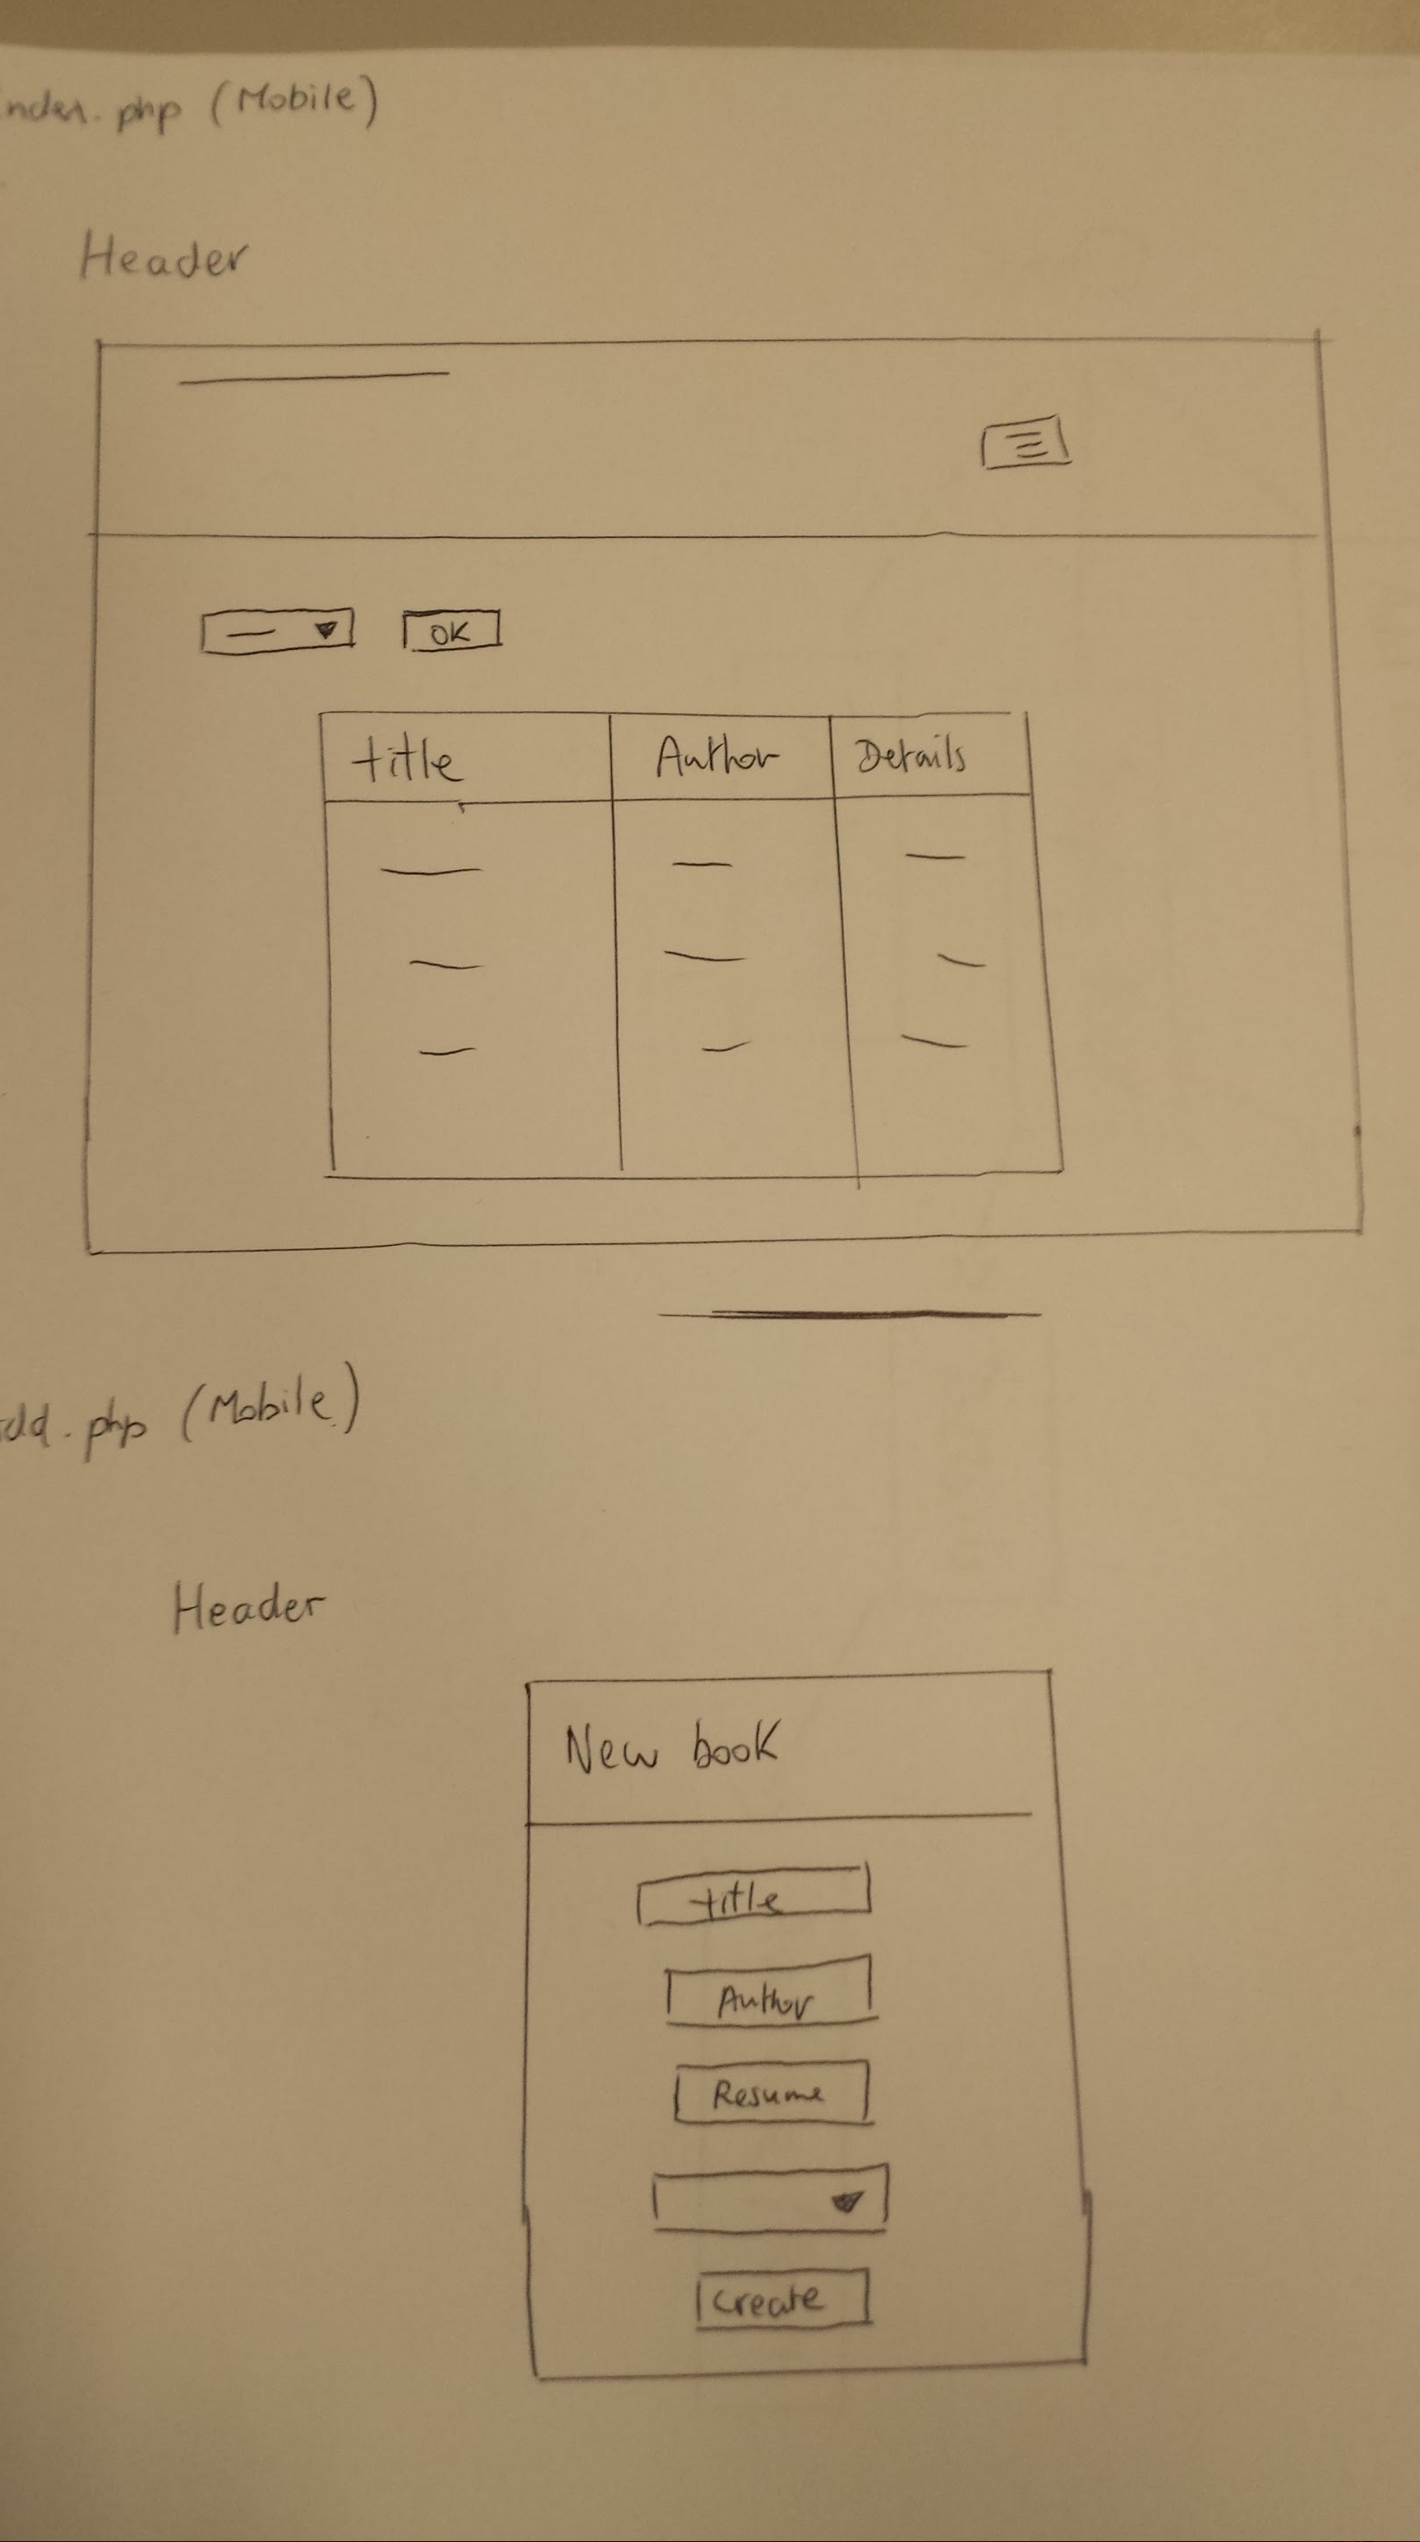 index.php (Mobile)
Header
OK
title Author Details
add.php (Mobile)
Header
New book
title
Author
Resume
create